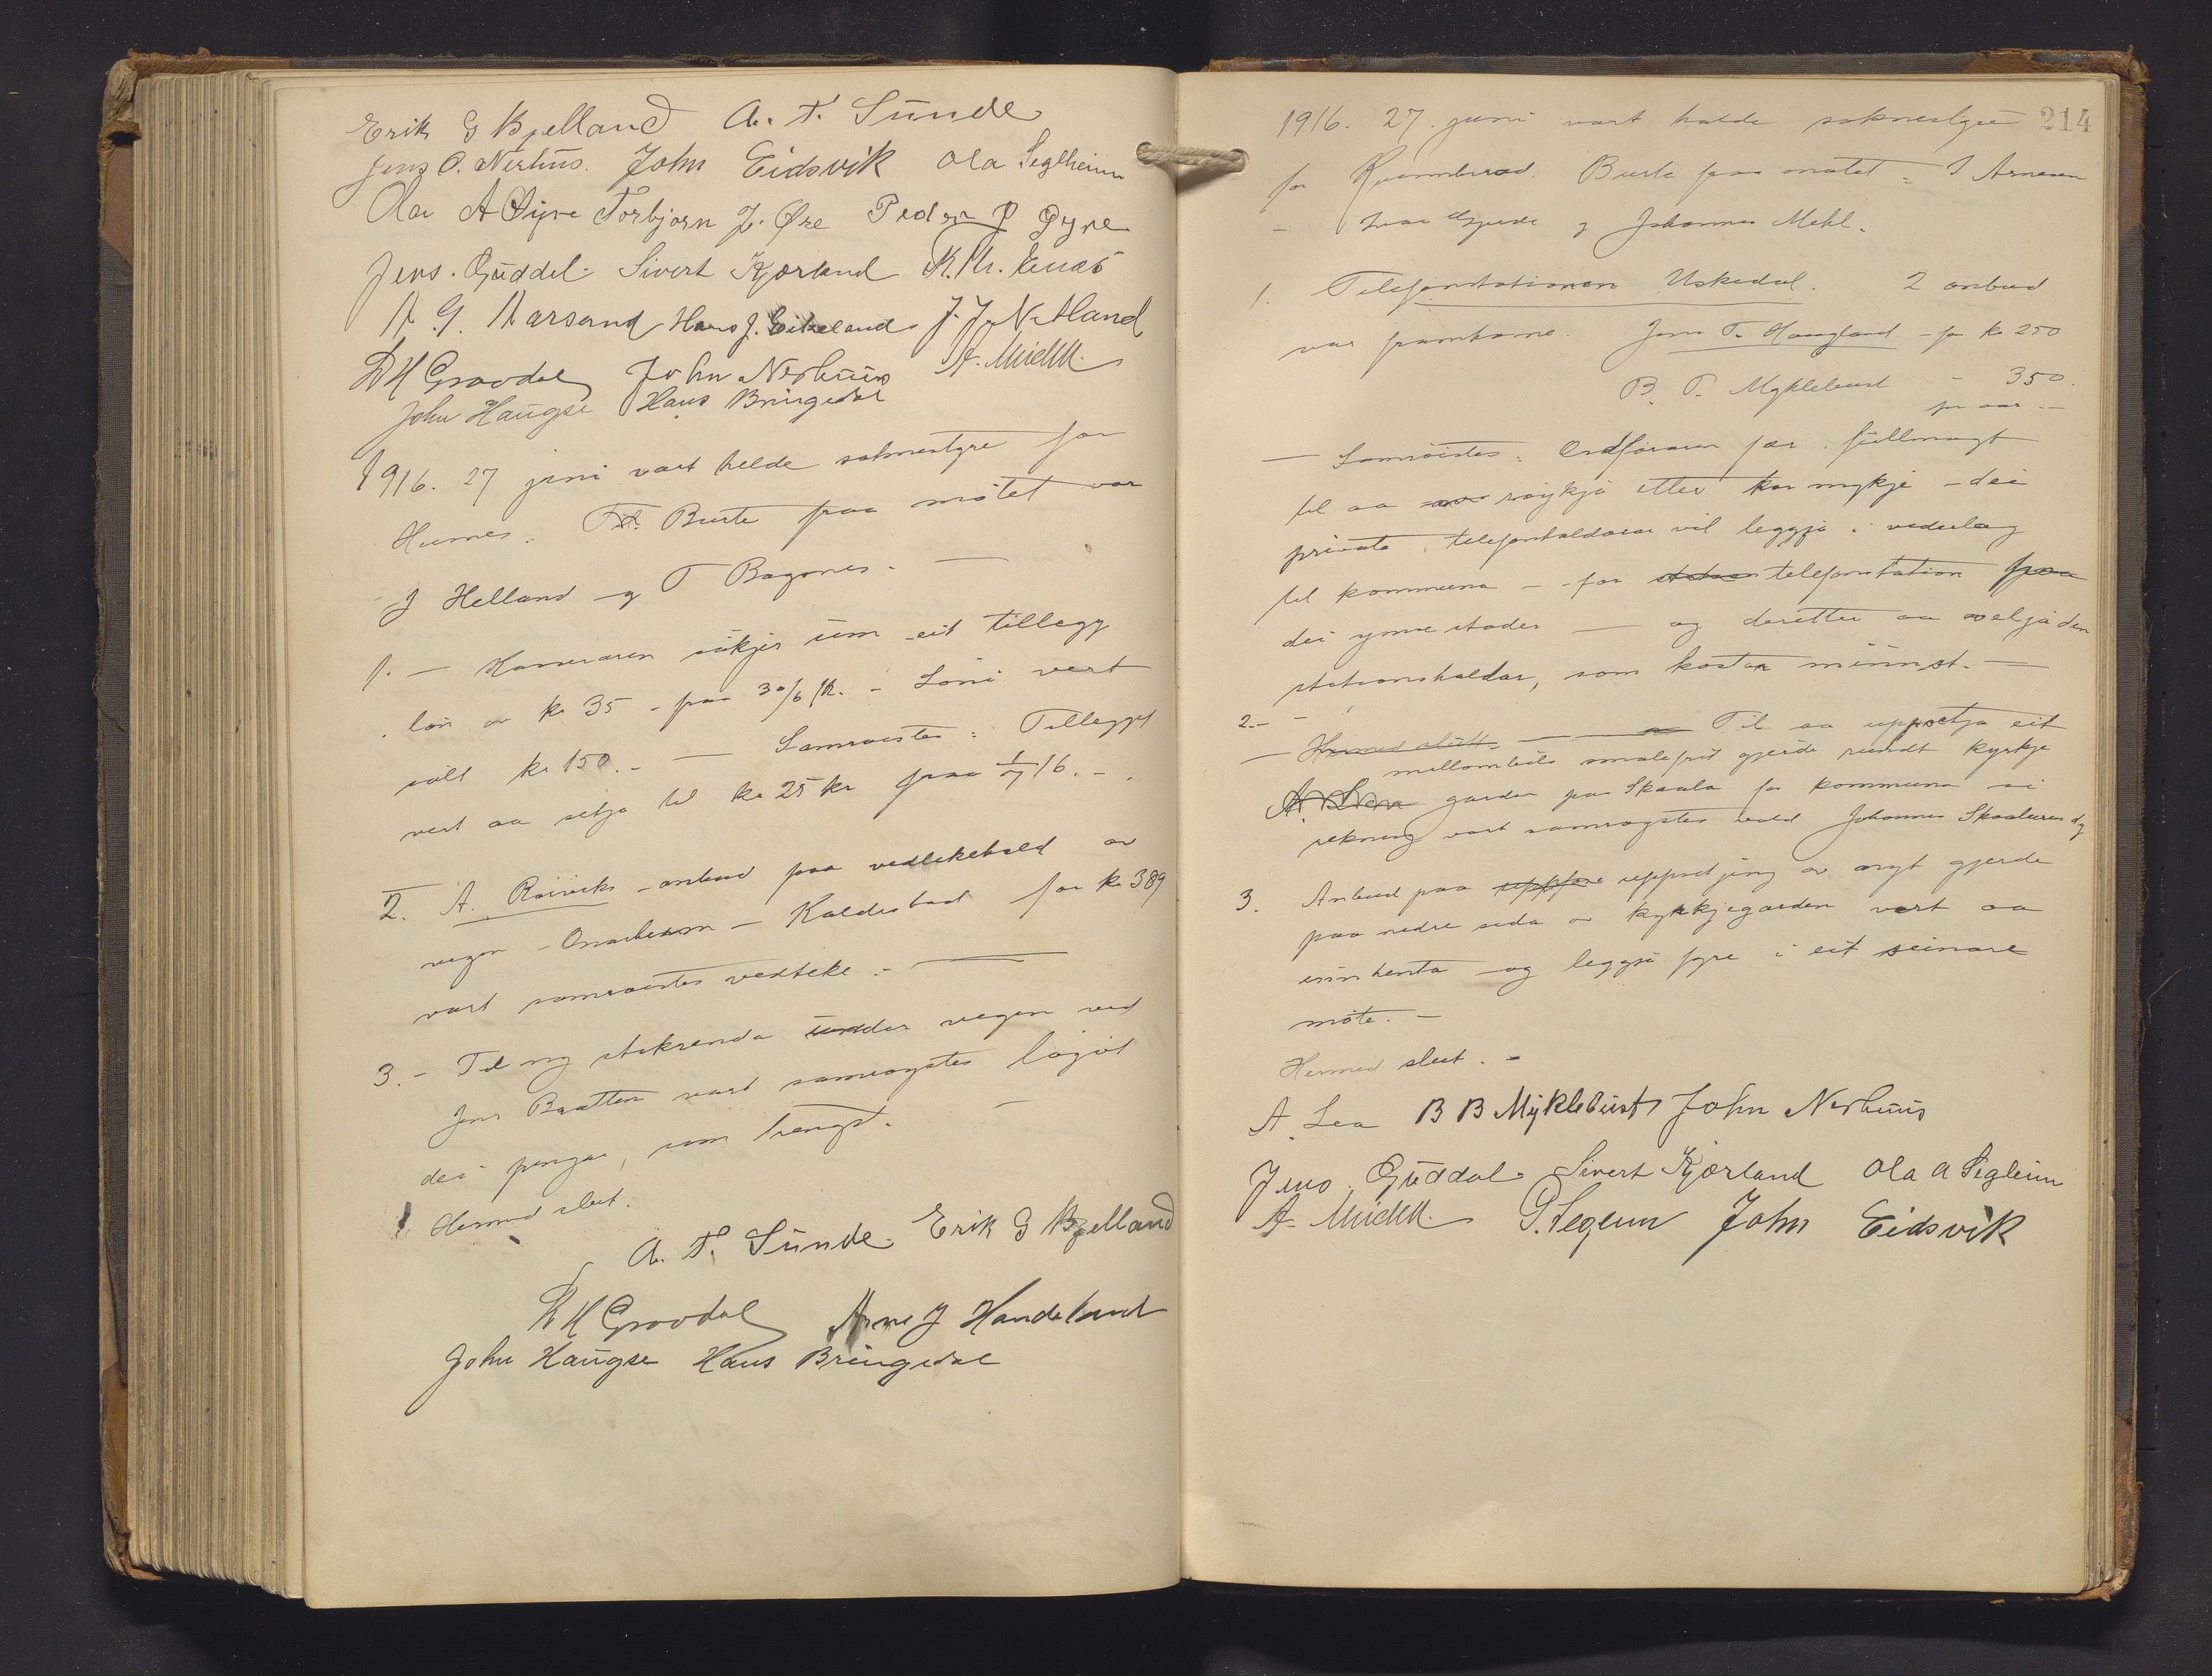 Erik G Kjelland A. T. Sunde
Jens O. Nerhus. John Eidsvik Ola Seglheim
Ola A Øyre Torbjørn J. Øre Peder P Øyre
Jens. Guddal. Sivert Kjærland K. Kr.
A. G. Aarsand Hans J. Eikeland J. J. Netland
D H Gravdal John Nerhus A. Midtbø.
John Haugse Hans Bringedal
1916. 27 juni vart helde soknestyre for
Husnes. Burte fraa møtet var
J Helland og T Bagnnes. —
1. — Kassraren søkjer um eit tillegg
løn av kr 35 – fraa 30/6 – Løni vert
sålt kr 150. – — Samrøistes: Tillegget
vert aa setja til kr 25 kr fraa 1/7 16. –
2. A. Røiviks – anbud paa vedlikehald av
vegen – Onarheim – Kaldestad for kr 389
vart samrøistes vedteke. —
3. – Til ny stikrenda under vegen ved
Jens Bratten vart samrøystes løyvt
dei pengar, som trengst. —
Hermed slut.
A. T. Sunde. Erik G Kjelland
D H Gravdal Arne J Handeland
John Haugse Hans Bringedal
214
1916. 27. juni vart halde soknestyre
for Kvinnherad. Burte fraa møtet: I Arnesen
– Ivar Gjerde og Johannes Mehl.
1. Telefonstationen Uskedal. 2 anbud
var framkome. Jens T. Haugland – for kr 250
B. T. Myklebust – 350.
pr aar. —
— Samrøistes: Ordføraren fær fullmagt
til aa røykja etter kor mykje – dei
private telefonhaldarar vil leggja i vederlag
til kommuna – for telefonstation fraa
dei ymse stader — og deretter aa velja den
stationshaldar, som kostar minnst. —
2. – – Hermed slutt. — Til aa uppsetja eit
mellombels smalefrit gjerde rundt kyrkje
garden paa Skaala for kommuna si
rekning vart samrøystes vald Johannes Skaaluren d.y
3. Anbud paa uppfør uppsetjing av nytt gjerde
paa nedre sida av kyrkjegarden vert aa
innhenta og leggja fyre i eit seinare
møte. —
Hermed slut. –
A. Lea B B Myklebust John Nerhus
Jens. Guddal. Sivert Kjærland Ola A Seglem
A. Midtbø. G. Seglem John Eidsvik